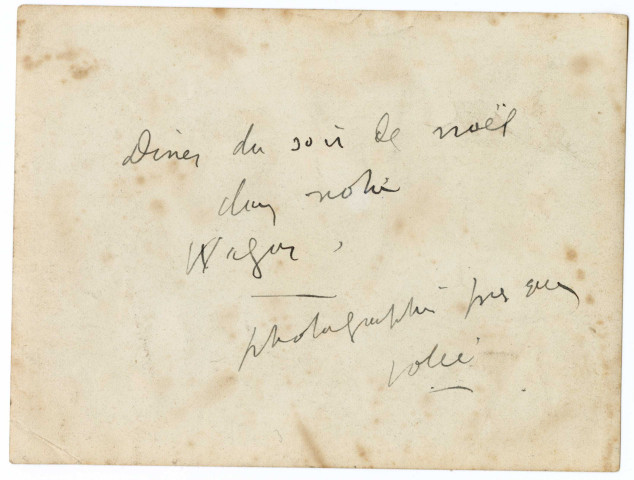 Diner du soir de noël
dans notre
Wagon,
photographie presque
voilée